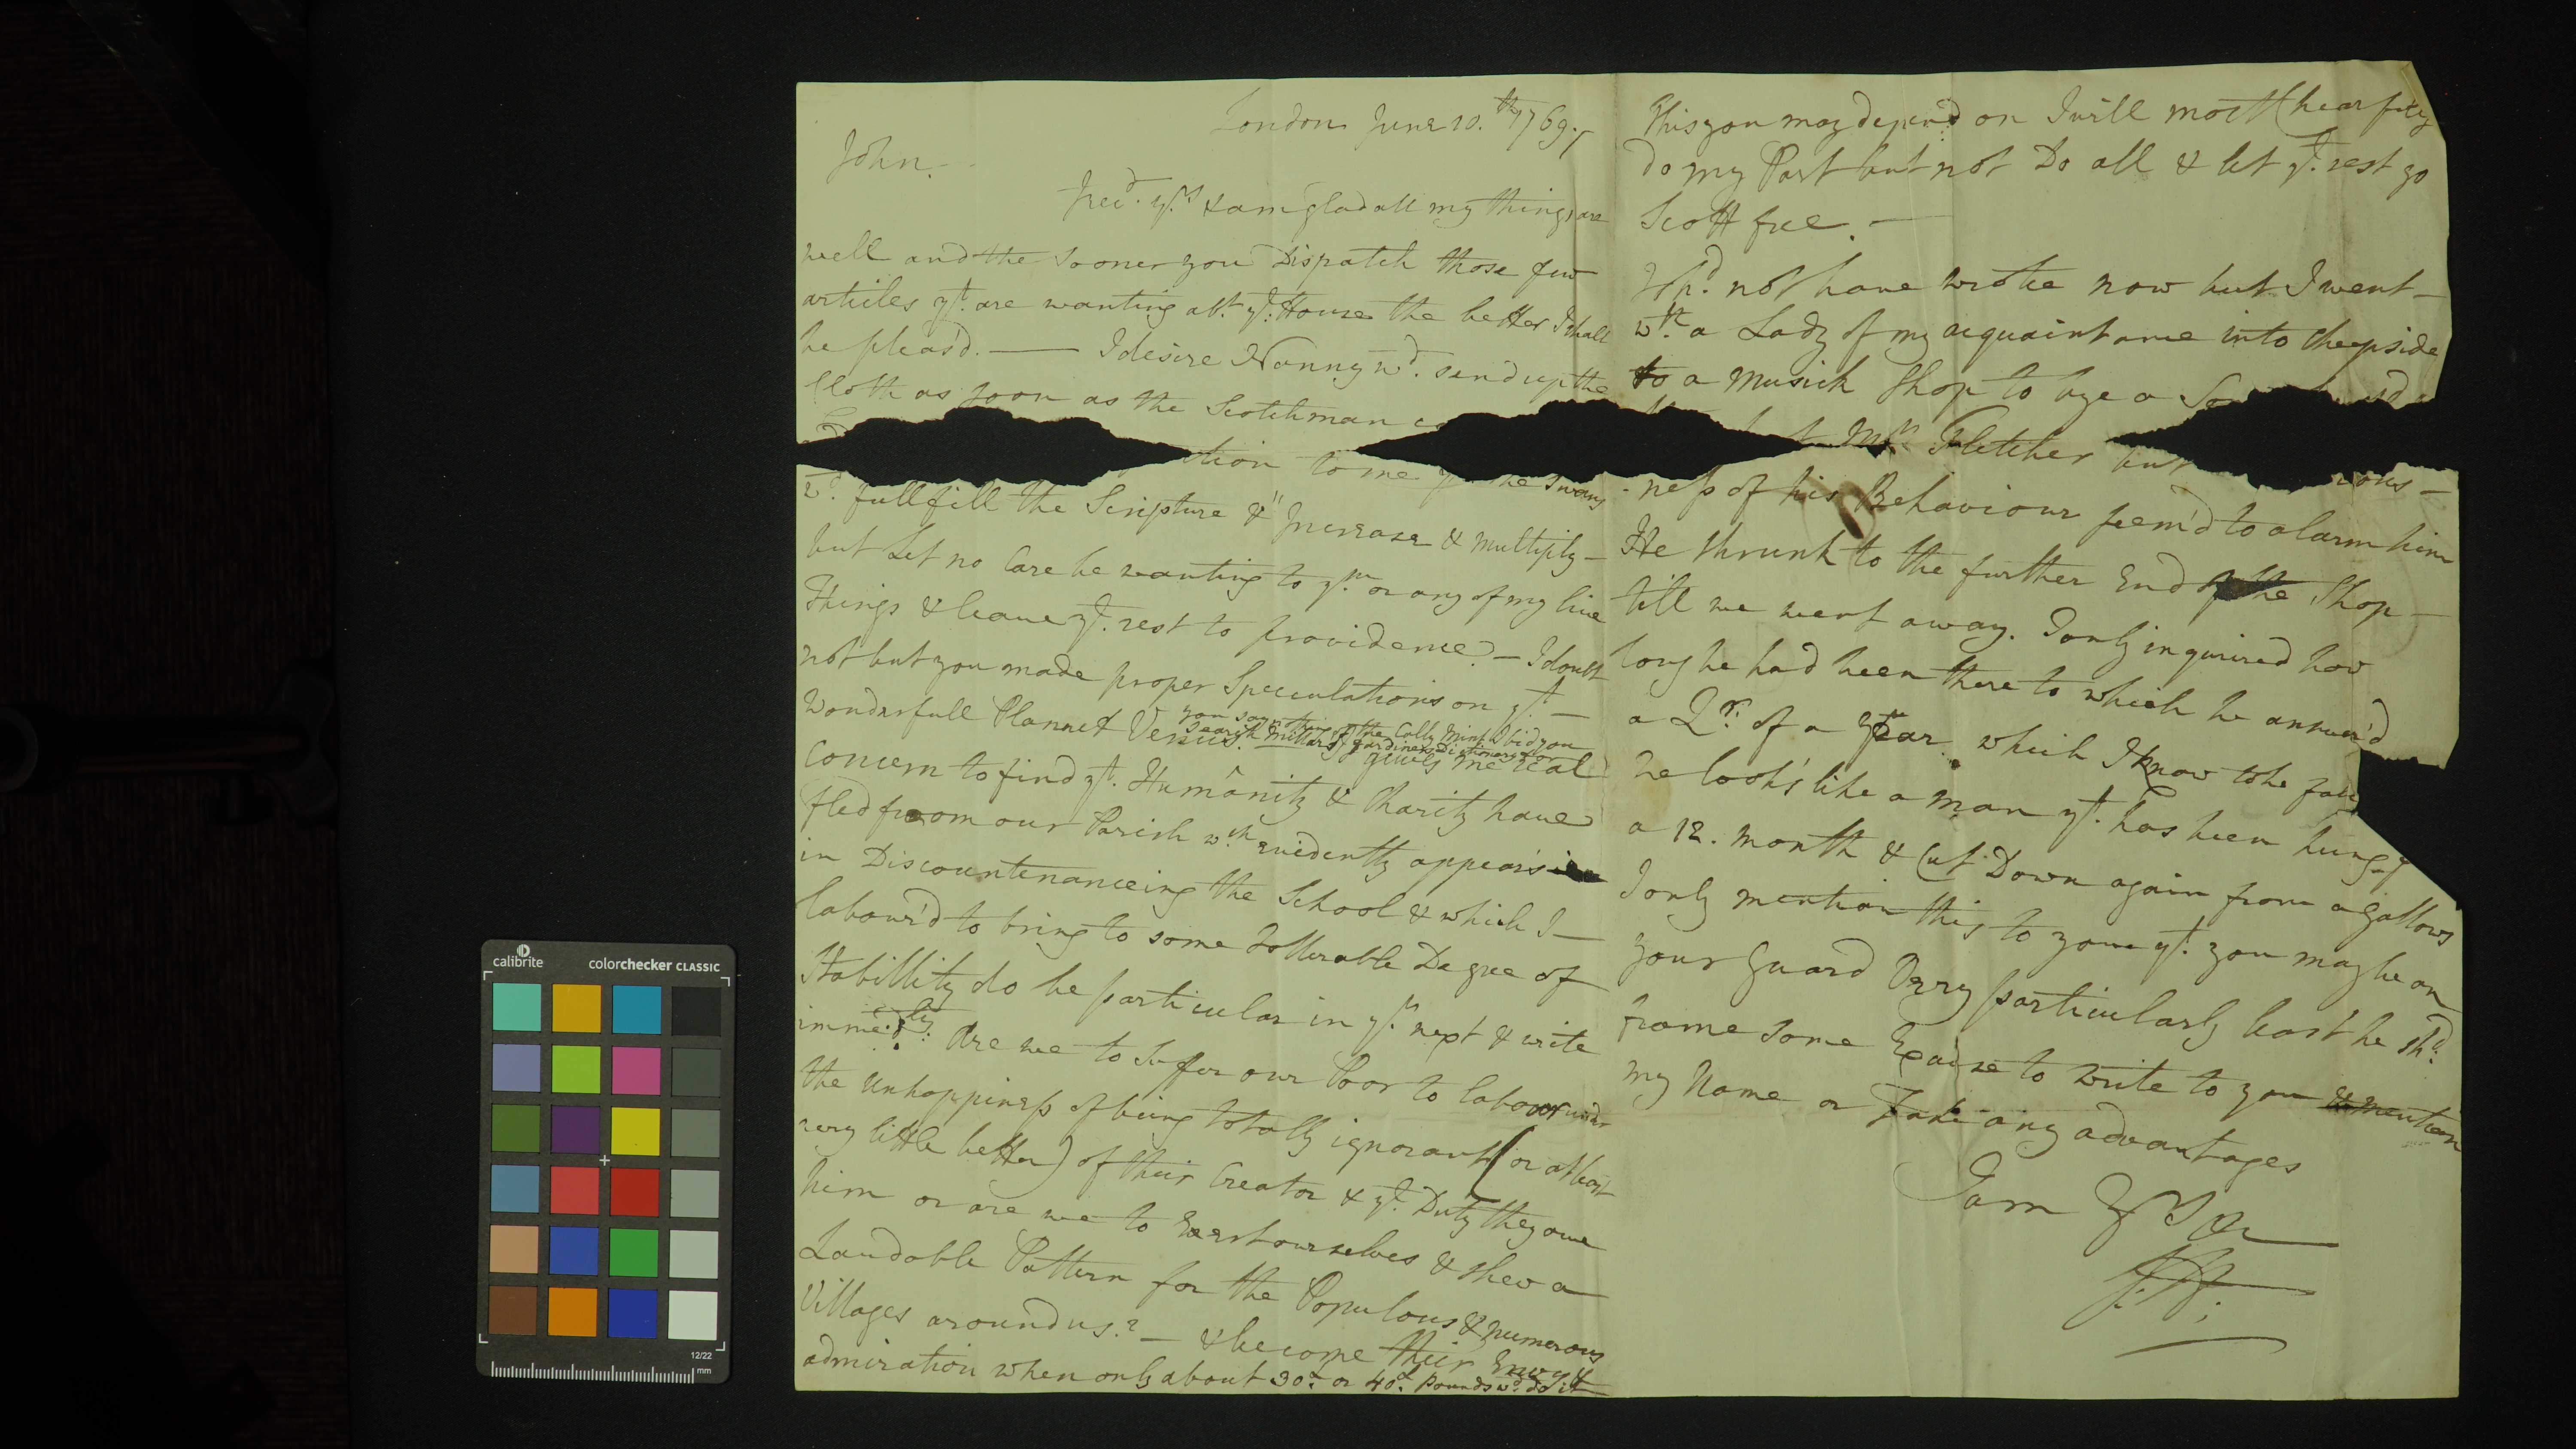 London June 10.th 1769.
John.
I recd. yrs & am glad all my things are
well and the sooner you Dispatch those few
articles yt. are wanting abt. ye. House the better I shall
be pleas'd. — I desire Nanny wd. send up the
Cloth as soon as the Scotchman
to me the Swans
wd. fullfill the Scripture & "Increase & multiply —
but Let no Care be wanting to ym or any of my live
Things & leave ye. rest to providence. — I doubt
not but you made proper Speculations on yt. —
Wonderfull Plannet Venus. you say nothing of the Catt Mint I bid you
search Millars gardiners Dictionary for
gives me real
Concern to find yt. Humanity & Charity have
fled from our Parish wch evidently appears
in Discountenanceing the School & which I —
labour'd to bring to some Tollerable Degree of
Stabillity do be particular in yr. next & write
immedly. Are we to suffer our Poor to labour under
the Unhappiness of being totally ignorant (or at least
very little better) of their Creator & ye. Duty they owe
him or are we to Exert ourselves & shew a
Laudable Pattern for the Populous & numerous
Villages around us? — & become their Envy &
admiration when only about 30 or 40 Pounds wd. do it
This you may depend on I will most heartily
do my Part but not Do all & let ye. rest go
Scott free. —
I shd. not have wrote now but I went —
wth. a Lady of my acquaintance into Cheapside
to a Musick Shop to bye a
Mr. Fletcher but
-ness of his Behaviour seem'd to alarm him
He shrunk to the further End of the Shop —
till we went away. I only inquired how
long he had been there to which he answer'd
a Qr. of a Year. which I know to be
he look's like a man yt. has been hung
a 12. month & Cut Down again from a gallows
I only mention this to you yt. you may be on
your Guard Very particularly least he shd.
frame some Excuse to write to you & mention
my Name or Take any advantages
I am Yrs &c